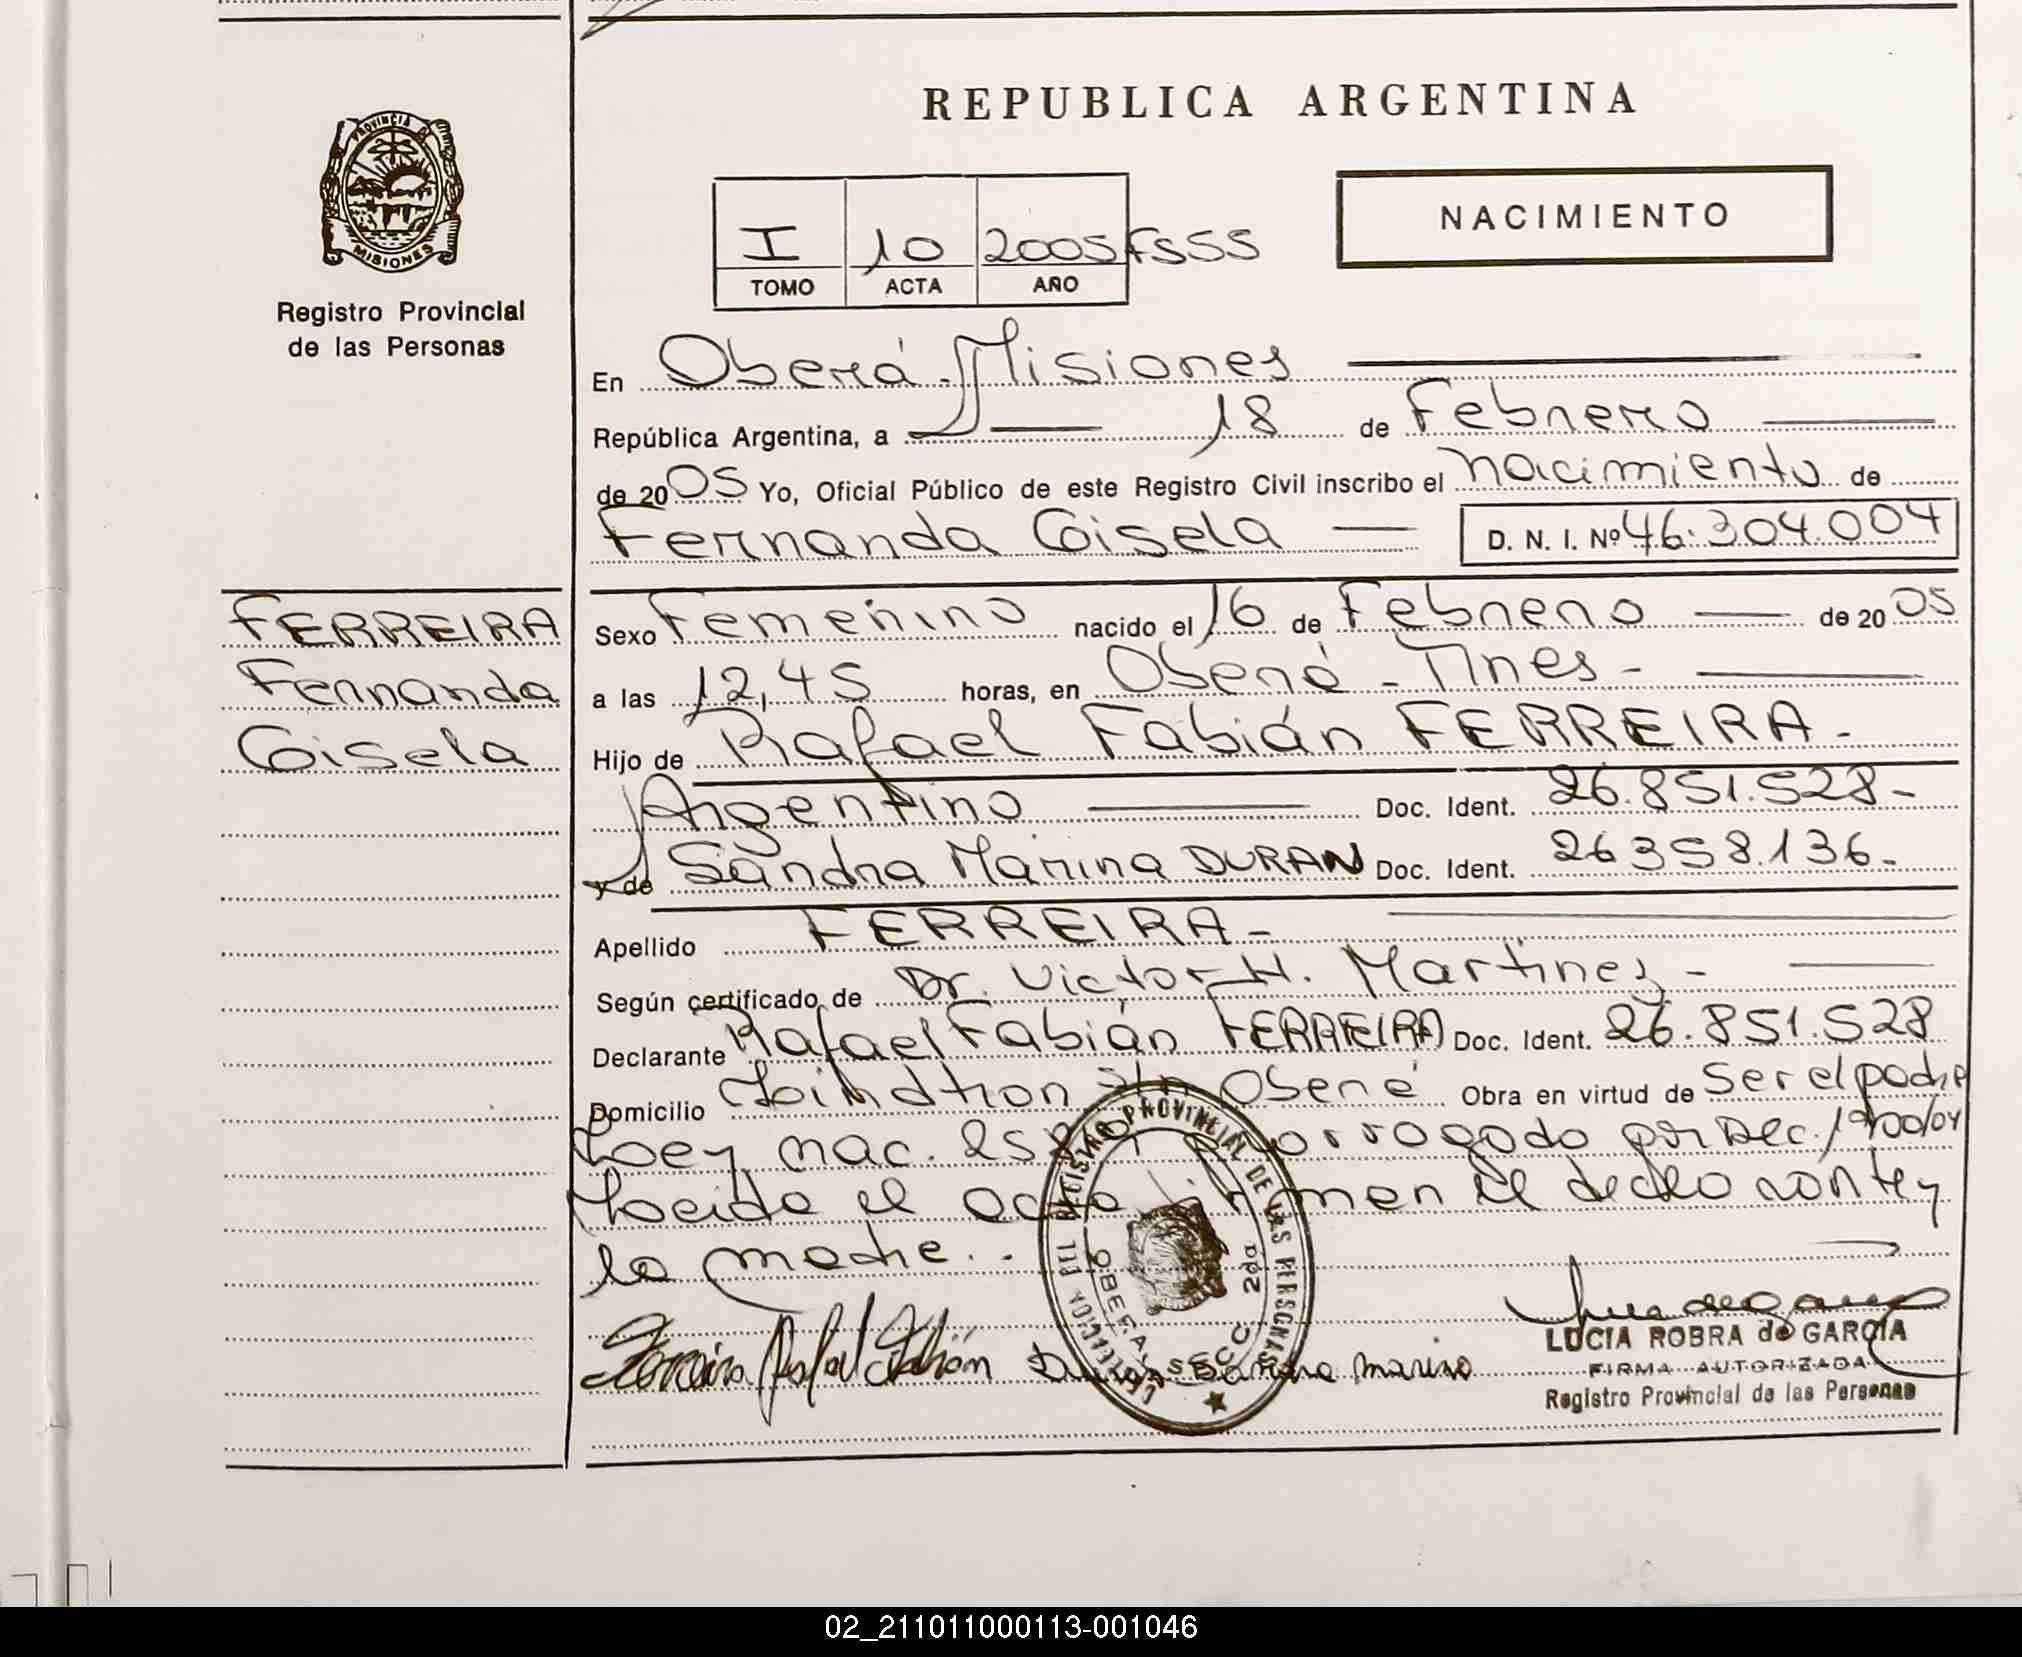 REPUBLICA ARGENTINA
PROVINCIA DE
MISIONES
Registro Provincial
de las Personas
NACIMIENTO
I 10 2005 FSSS
TOMO ACTA AÑO
En Oberá Misiones
República Argentina, a 18 de Febrero
de 2005 Yo, Oficial Público de este Registro Civil inscribo el nacimiento de
Fernanda Gisela D. N. I. Nº 46.304.004
FERREIRA
Fernanda
Gisela
Sexo Femenino nacido el 16 de Febrero de 2005
a las 12,45 horas, en Oberá - Mnes -
Hijo de Rafael Fabián FERREIRA -
Argentino Doc. Ident. 26.851.528 -
y de Sandra Marina DURAN Doc. Ident. 26358.136 -
Apellido FERREIRA -
Según certificado de Dr. Victor H. Martinez -
Declarante Rafael Fabián FERREIRA Doc. Ident. 26.851.528
Domicilio s/n Oberá Obra en virtud de ser el padre
Ley nac. prorrogado por Dec.
Leida el acta firman el declarante y
la madre.
Ferreira Rafael Fabián Duran Sandra Marina
DIRECCION DEL REGISTRO PROVINCIAL DE LAS PERSONAS
OBERA SECC 2da
LUCIA ROBRA de GARCIA
FIRMA AUTORIZADA
Registro Provincial de las Personas
02_211011000113-001046